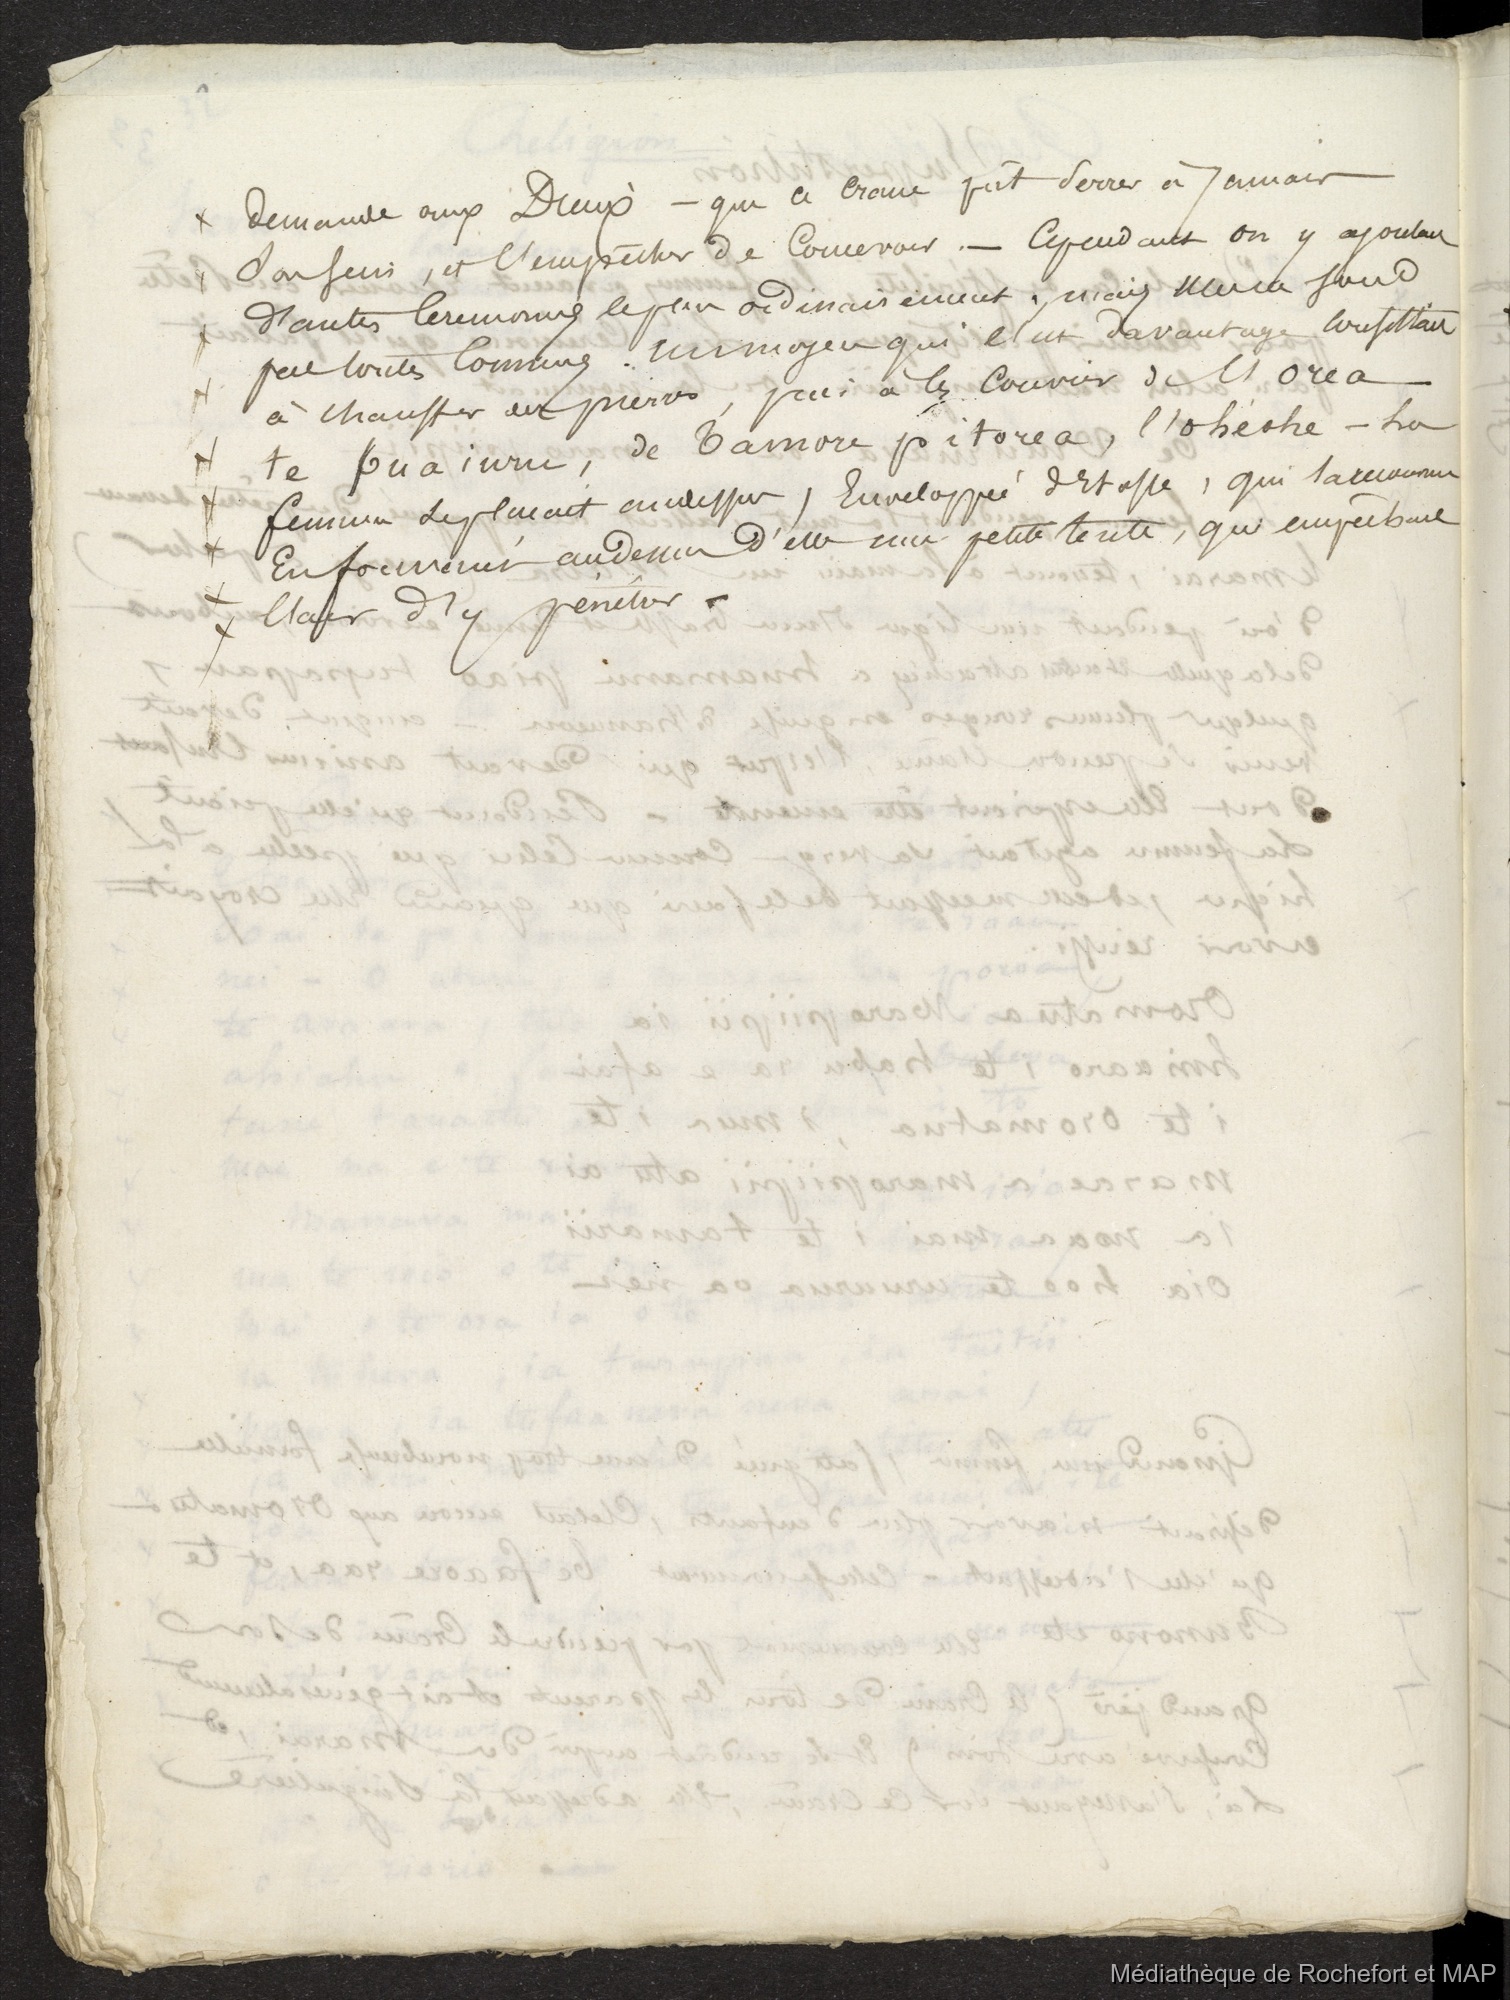 demande aux Dieux – que ce crane fut serrer à Jamais
son sein, et l'empêcher de Concevoir. — Cependant on y ajoutait
d'autres Ceremonies le plus ordinairement, mais elles ne sont
pas toutes Connues. Un moyen qui l'est davantage Consistait
à chauffer des pierres, puis à les Couvrir de l'Orea
te puaiuru, de Tamore pitorea, l'ohéohe – La
femme se plaçait au dessus, Enveloppée d'Etoffe, qui
En formaient au dessus d'elle une petite tente, qui empêchait
l'air d'y pénétrer –
Médiathèque de Rochefort et MAP